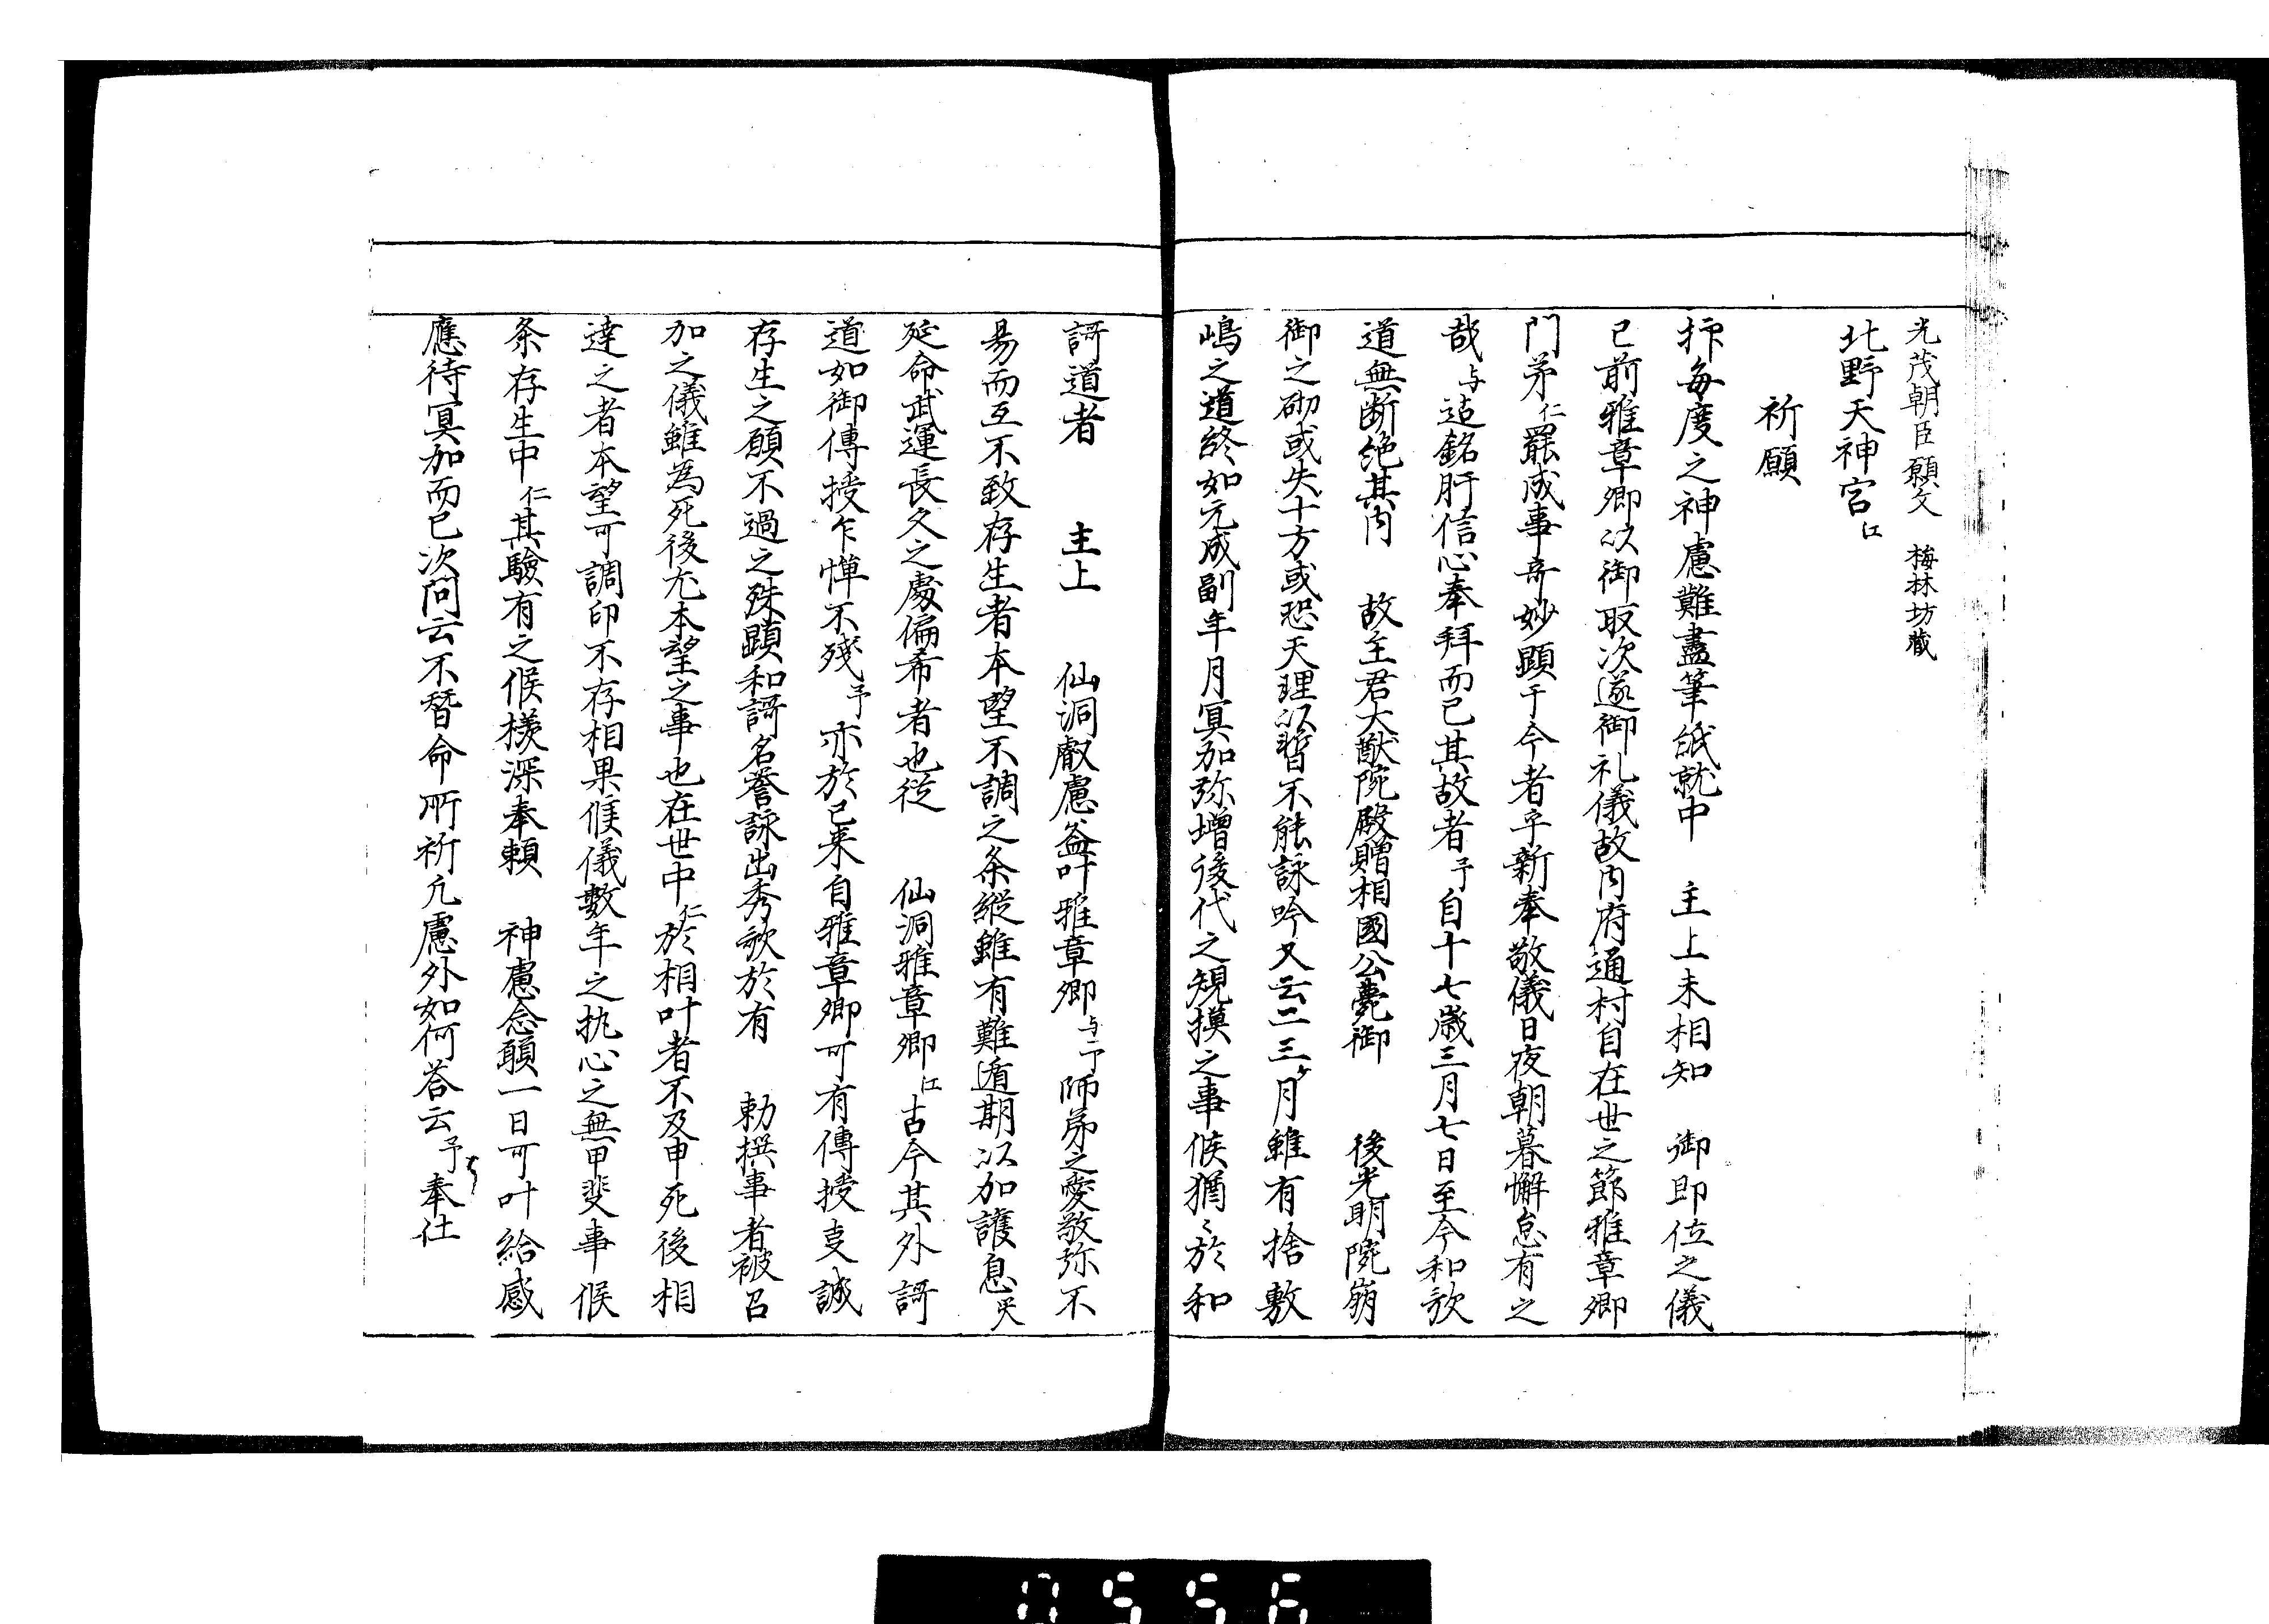 光茂朝臣願文　梅林坊蔵
北野天神宮江
祈願
抑毎度之神慮難盡筆紙就中　主上未相知　御即位之儀
已前雅章卿以御取次遂御礼儀故内府通村自在世之節雅章卿
門弟仁罷成事奇妙顕于今者乎新奉敬儀日夜朝暮懈怠有之
哉与迠銘肝信心奉拜而已其故者予自十七歳三月七日至今和歌
道無断絶其内　故主君大猷院殿贈相國公薨御　後光明院崩
御之砌或失十方或恐天理以暫不能詠吟又云二三ケ月雖有捨敷
嶋之道終如元成副年月冥加弥増後代之規摸之事候猶〻於和
謌道者　主上　仙洞叡慮益叶雅章卿与予師弟之愛敬弥不
易而互不致存生者本望不調之条縦雖有難遁期以加護息災
延命武運長久之處偏希者也従　仙洞雅章卿江古今其外謌
道如御傳授乍憚不殘予亦於已来自雅章卿可有傳授支誠
存生之願不過之殊顕和謌名誉詠出秀歌於有　勅撰事者被召
加之儀雖為死後尤本望之事也在世中仁於相叶者不及申死後相
達之者本望可調印不存相果候儀數年之執心之無甲斐事候
条存生中仁其驗有之候様深奉頼　神慮念願一日可叶給感
應待冥加而已次問云不替命所祈凡慮外如何答云予奉仕